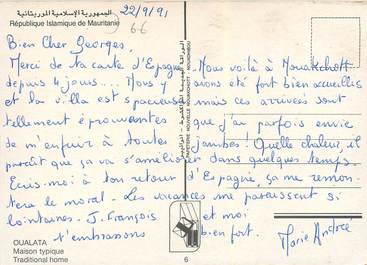 الجمهورية الإسلامية الموريتانية
République Islamique de Mauritanie
22/9/91
66
Bien Cher Georges,
Merci de ta carte d'Espagne. Nous voilà à Nouakchott
depuis 4 jours.... Nous y avons été fort bien accueillis
et la villa est spacieuse mais ces arrivées sont
tellement éprouvantes que j'ai parfois envie
de m'enfuir à toutes jambes! Quelle chaleur, il
paraît que ça va s'améliorer dans quelques temps.
Ecris-moi à ton retour d'Espagne, ça me remon-
tera le moral. Les vacances me paraissent si
lointaines. J. François et moi
t'embrassons bien fort.
Marie Andrée
OUALATA
Maison typique
Traditional home
PAPETERIE NOUVELLE NOUAKCHOTT
6